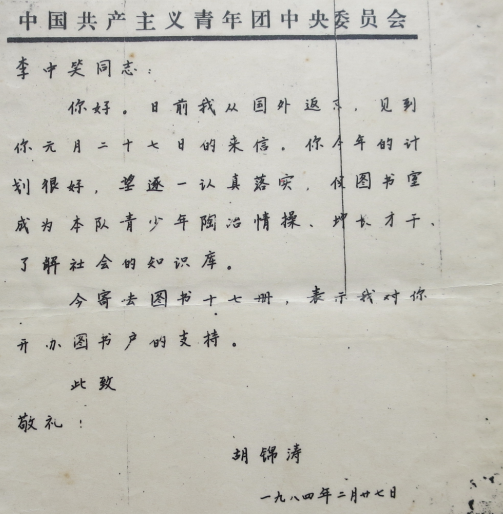 中国共产主义青年团中央委员会
李中笑同志：
你好。日前我从国外返京，见到
你元月二十七日的来信。你今年的计
划很好，望逐一认真落实，使图书室
成为本队青少年陶冶情操、增长才干、
了解社会的知识库。
今寄去图书十七册，表示我对你
开办图书户的支持。
此致
敬礼！
胡锦涛
一九八四年二月廿七日